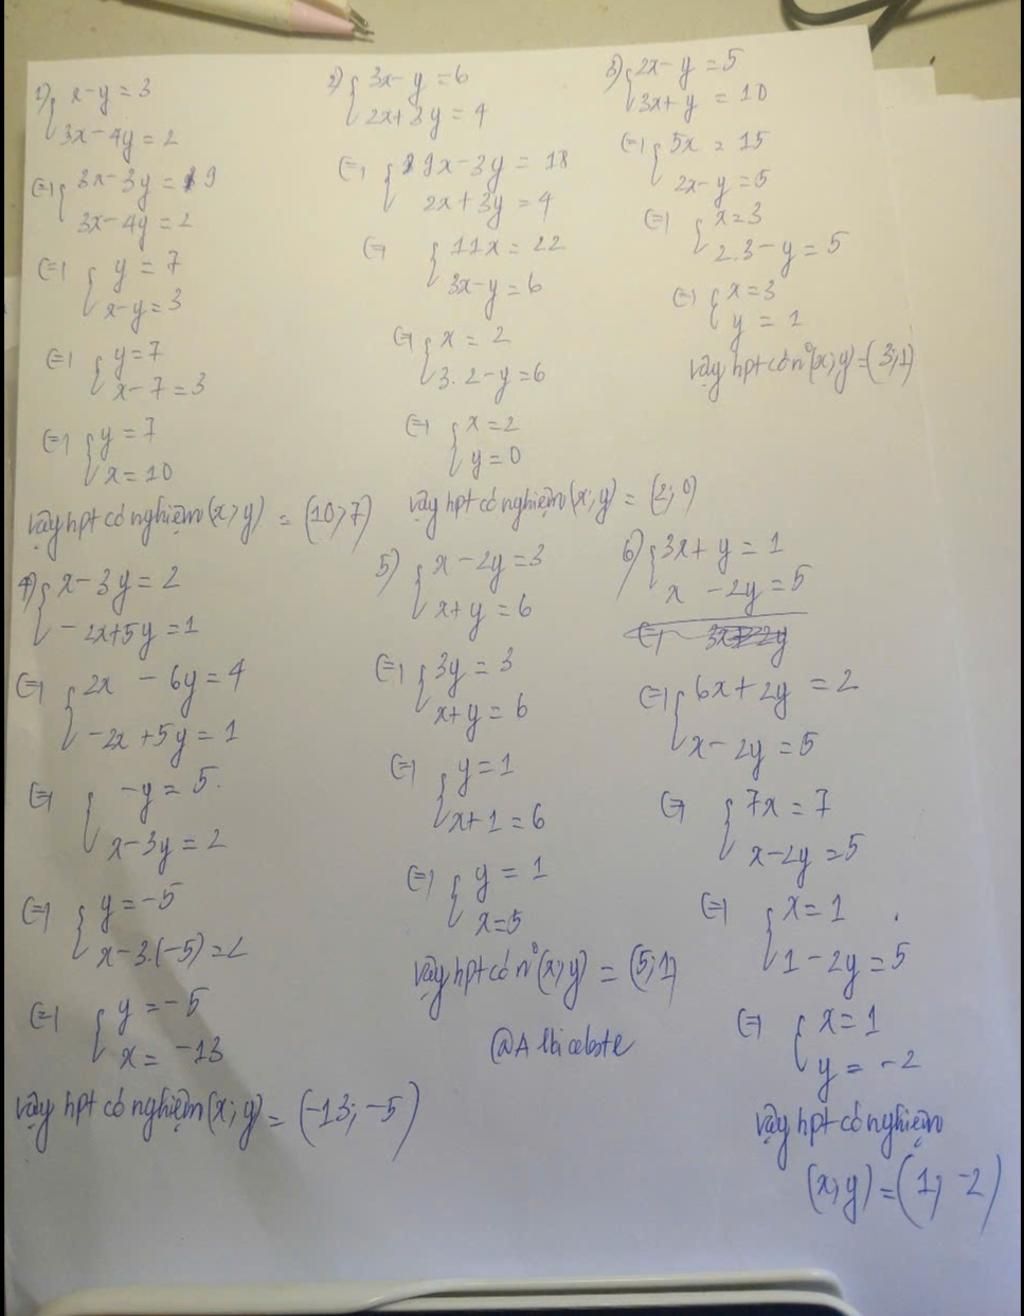 1) { x - y = 3
3x - 4y = 2
⇔ { 3x - 3y = 9
3x - 4y = 2
⇔ { y = 7
x - y = 3
⇔ { y = 7
x - 7 = 3
⇔ { y = 7
x = 10
Vậy hpt có nghiệm (x; y) = (10; 7)
2) { 3x - y = 6
2x + 3y = 4
⇔ { 9x - 3y = 18
2x + 3y = 4
⇔ { 11x = 22
3x - y = 6
⇔ { x = 2
3. 2 - y = 6
⇔ { x = 2
y = 0
Vậy hpt có nghiệm (x; y) = (2; 0)
3) { 2x - y = 5
3x + y = 10
⇔ { 5x = 15
2x - y = 5
⇔ { x = 3
2.3 - y = 5
⇔ { x = 3
y = 1
Vậy hpt có n° (x; y) = (3; 1)
4) { x - 3y = 2
-2x + 5y = 1
⇔ { 2x - 6y = 4
-2x + 5y = 1
⇔ { -y = 5
x - 3y = 2
⇔ { y = -5
x - 3.(-5) = 2
⇔ { y = -5
x = -13
Vậy hpt có nghiệm (x; y) = (-13; -5)
5) { x - 2y = 3
x + y = 6
⇔ { 3y = 3
x + y = 6
⇔ { y = 1
x + 1 = 6
⇔ { y = 1
x = 5
Vậy hpt có n° (x; y) = (5; 1)
@Albiceleste
6) { 3x + y = 1
x - 2y = 5
⇔ { 6x + 2y = 2
x - 2y = 5
⇔ { 7x = 7
x - 2y = 5
⇔ { x = 1
1 - 2y = 5
⇔ { x = 1
y = -2
Vậy hpt có nghiệm
(x; y) = (1; -2)